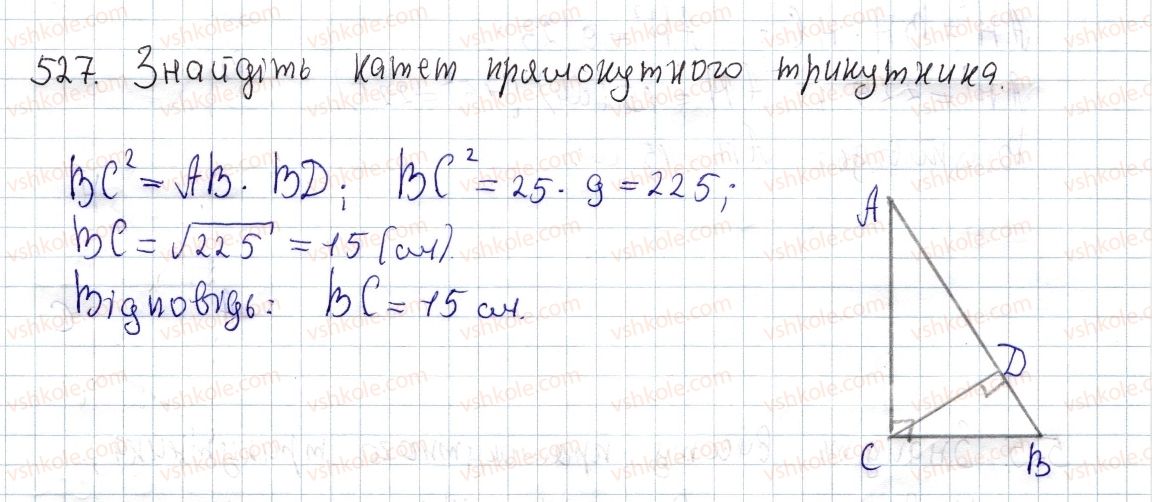 527. Знайдіть катет прямокутного трикутника.
BC² = AB · BD; BC² = 25 · 9 = 225;
BC = √225 = 15 (см).
Відповідь: BC = 15 см.
A
D
C
B